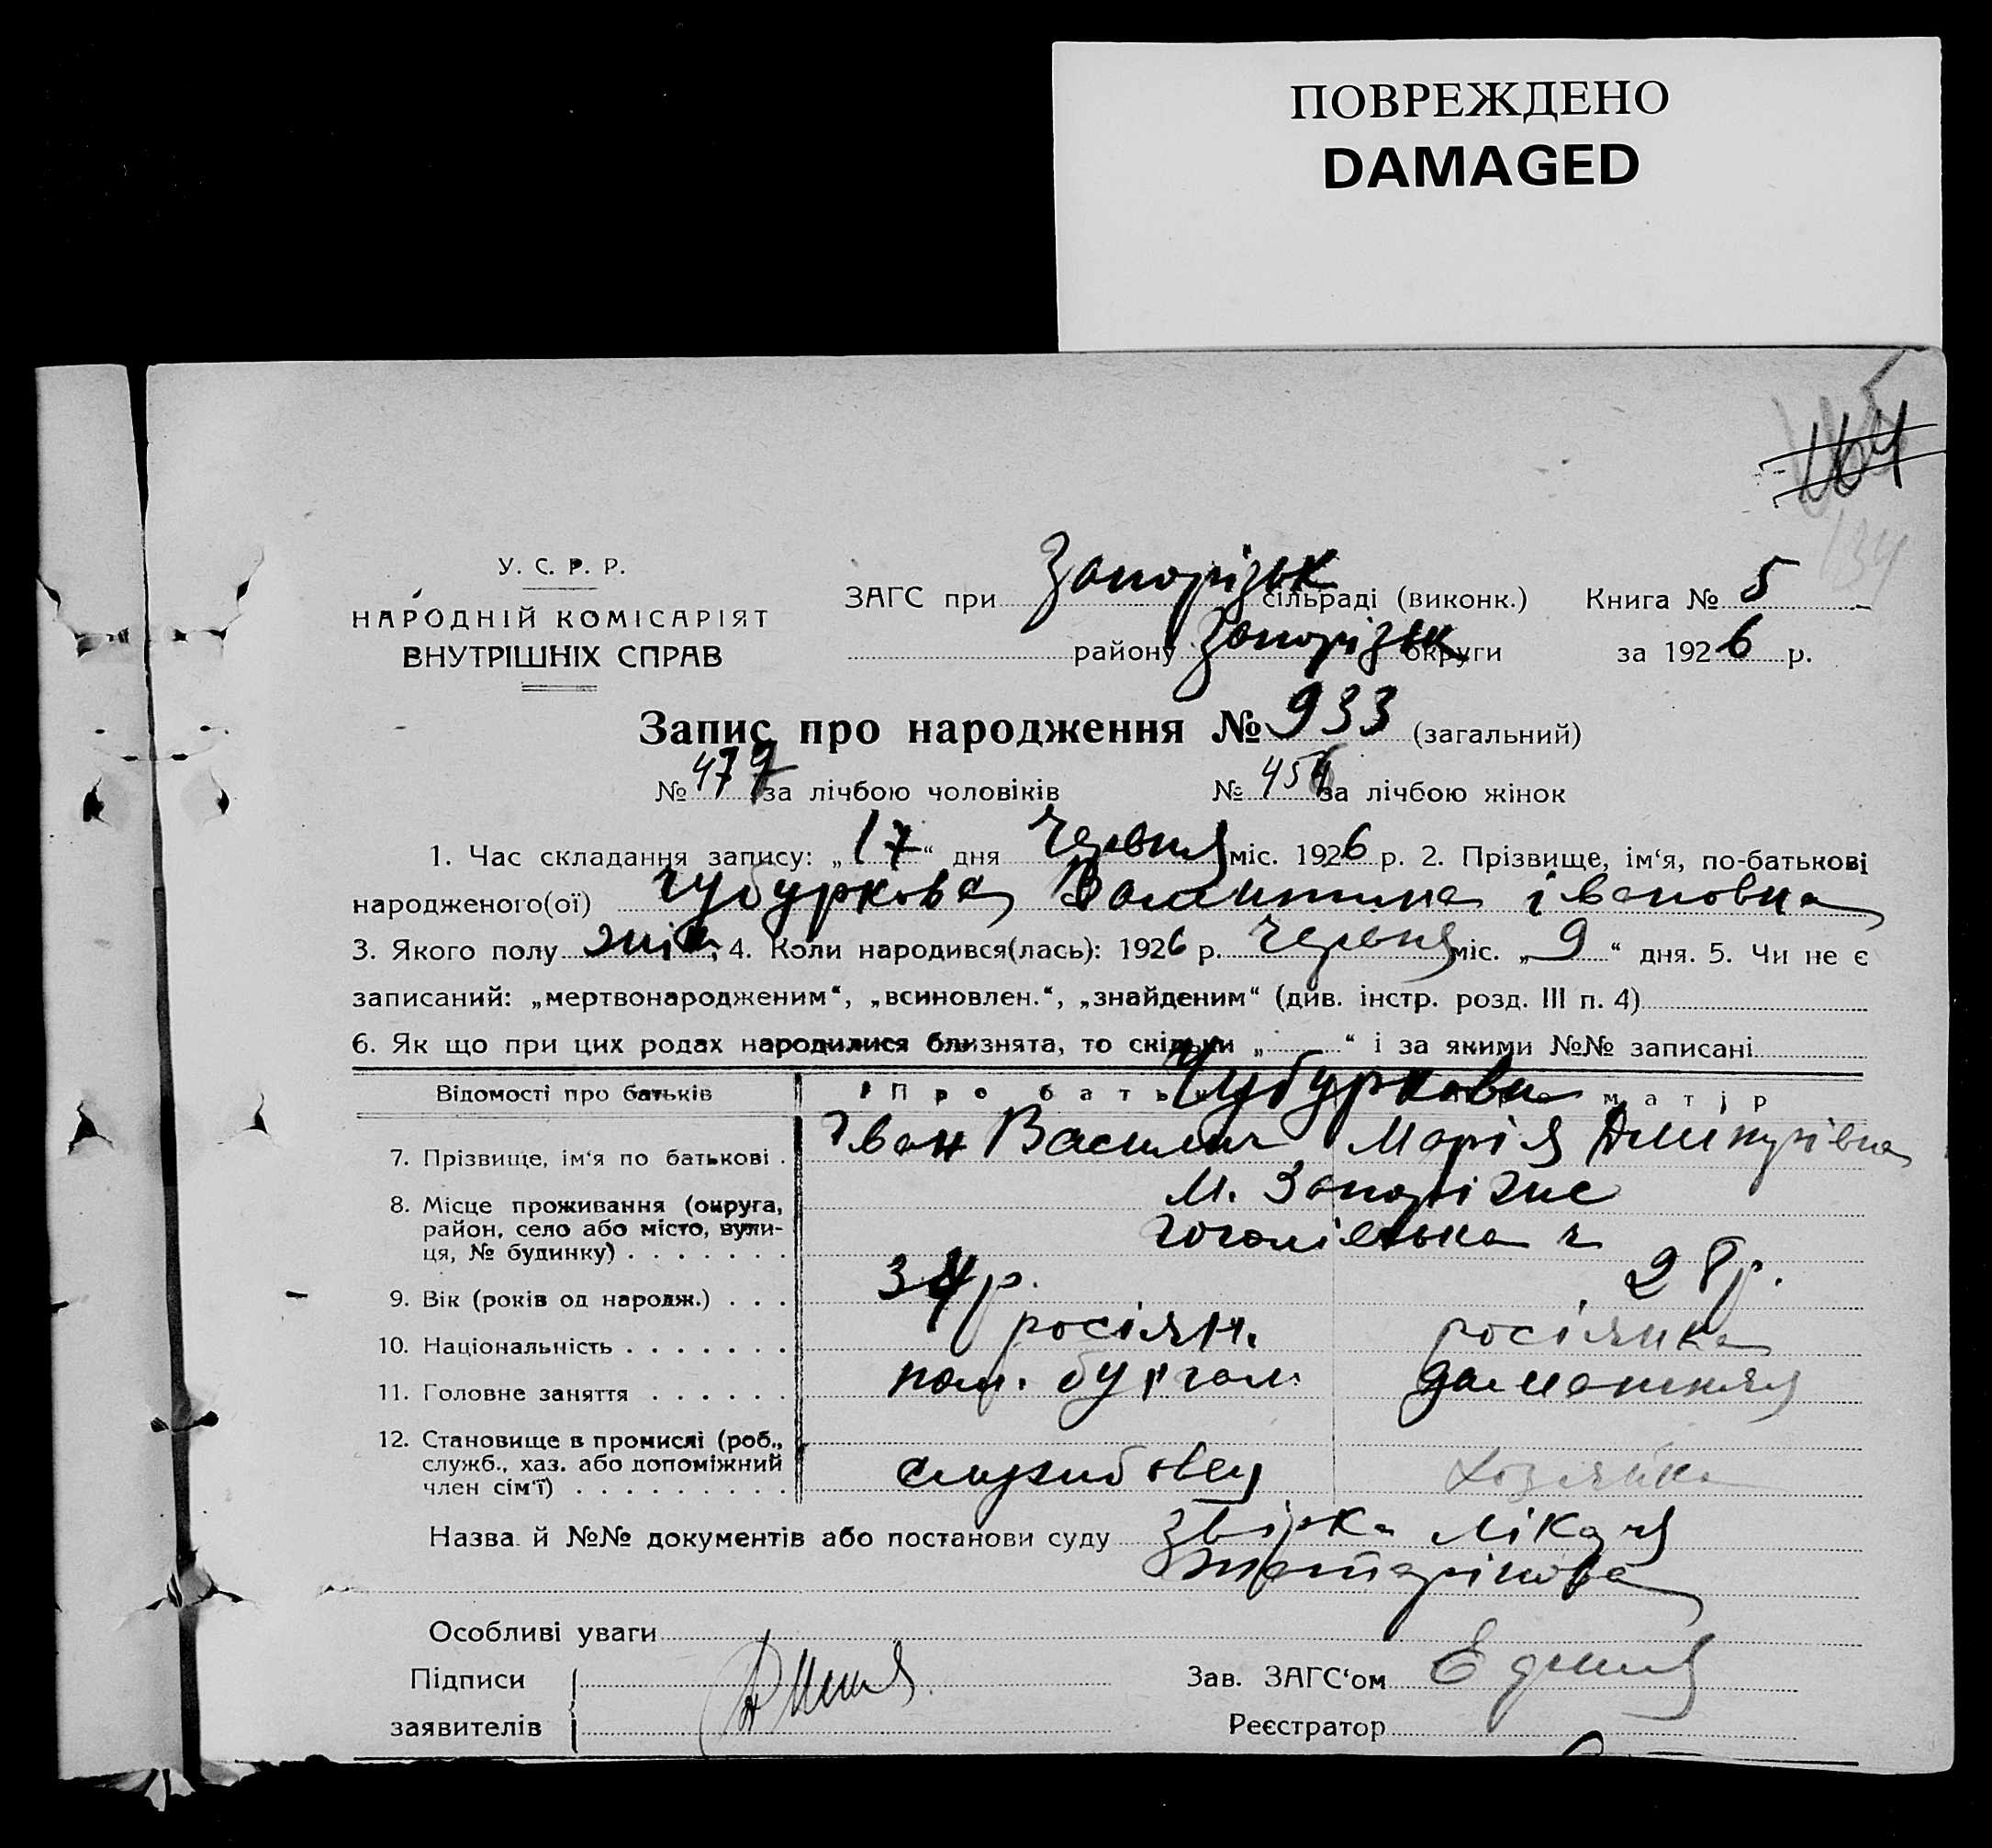 ПОВРЕЖДЕНО
DAMAGED
164
134
У. С. Р. Р.
НАРОДНІЙ КОМІСАРІЯТ
ВНУТРІШНІХ СПРАВ
ЗАГС при Запорізьк сільраді (виконк.) Книга № 5
району Запорізьк округи за 1926 р.
Запис про народження № 933 (загальний)
№ 479 за лічбою чоловіків № 454 за лічбою жінок
1. Час складання запису: „17“ дня Червня міс. 1926 р. 2. Прізвище, ім‘я, по-батькові
народженого(ої) Чубуркова Валентина івановна
3. Якого полу жін.; 4. Коли народився(лась): 1926 р. Червня міс. „9“ дня. 5. Чи не є
записаний: „мертвонародженим“, „всиновлен.“, „знайденим“ (див. інстр. розд. III п. 4)
6. Як що при цих родах народилися близнята, то скільки „ “ і за якими №№ записані
Відомості про батьків Про батька Чубуркови матір
7. Прізвище, ім‘я по батькові . Іван Василич Марія Дмитрівна
8. Місце проживання (округа, М. Запоріжжє
район, село або місто, вули-
ця, № будинку) . . . . . . . гоголівська
9. Вік (років од народж.) . . . 34 р. 28 р.
10. Національність . . . . . . . росіян. росіянка
11. Головне заняття . . . . . . пом. бухгал. домашняя
12. Становище в промислі (роб.,
служб., хаз. або допоміжний
член сім‘ї) . . . . . . . . . службовец хозяйка
Назва й №№ документів або постанови суду звірка лікаря
Особливі уваги
Підписи Зав. ЗАГС‘ом
заявителів Реєстратор